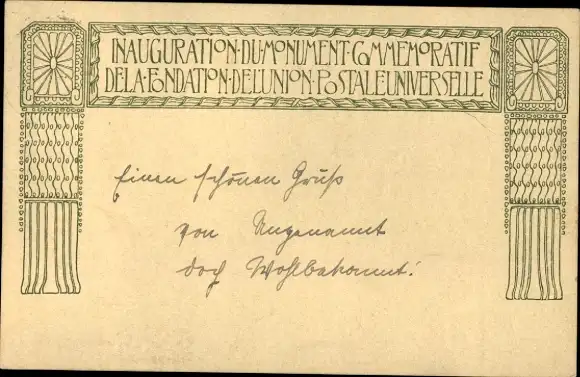 INAUGURATION·DU·MONUMENT·COMMEMORATIF
DE·LA·FONDATION·DE·L'UNION·POSTALE·UNIVERSELLE
Einen schönen Gruß
von Ungenannt
doch Wohlbekannt!